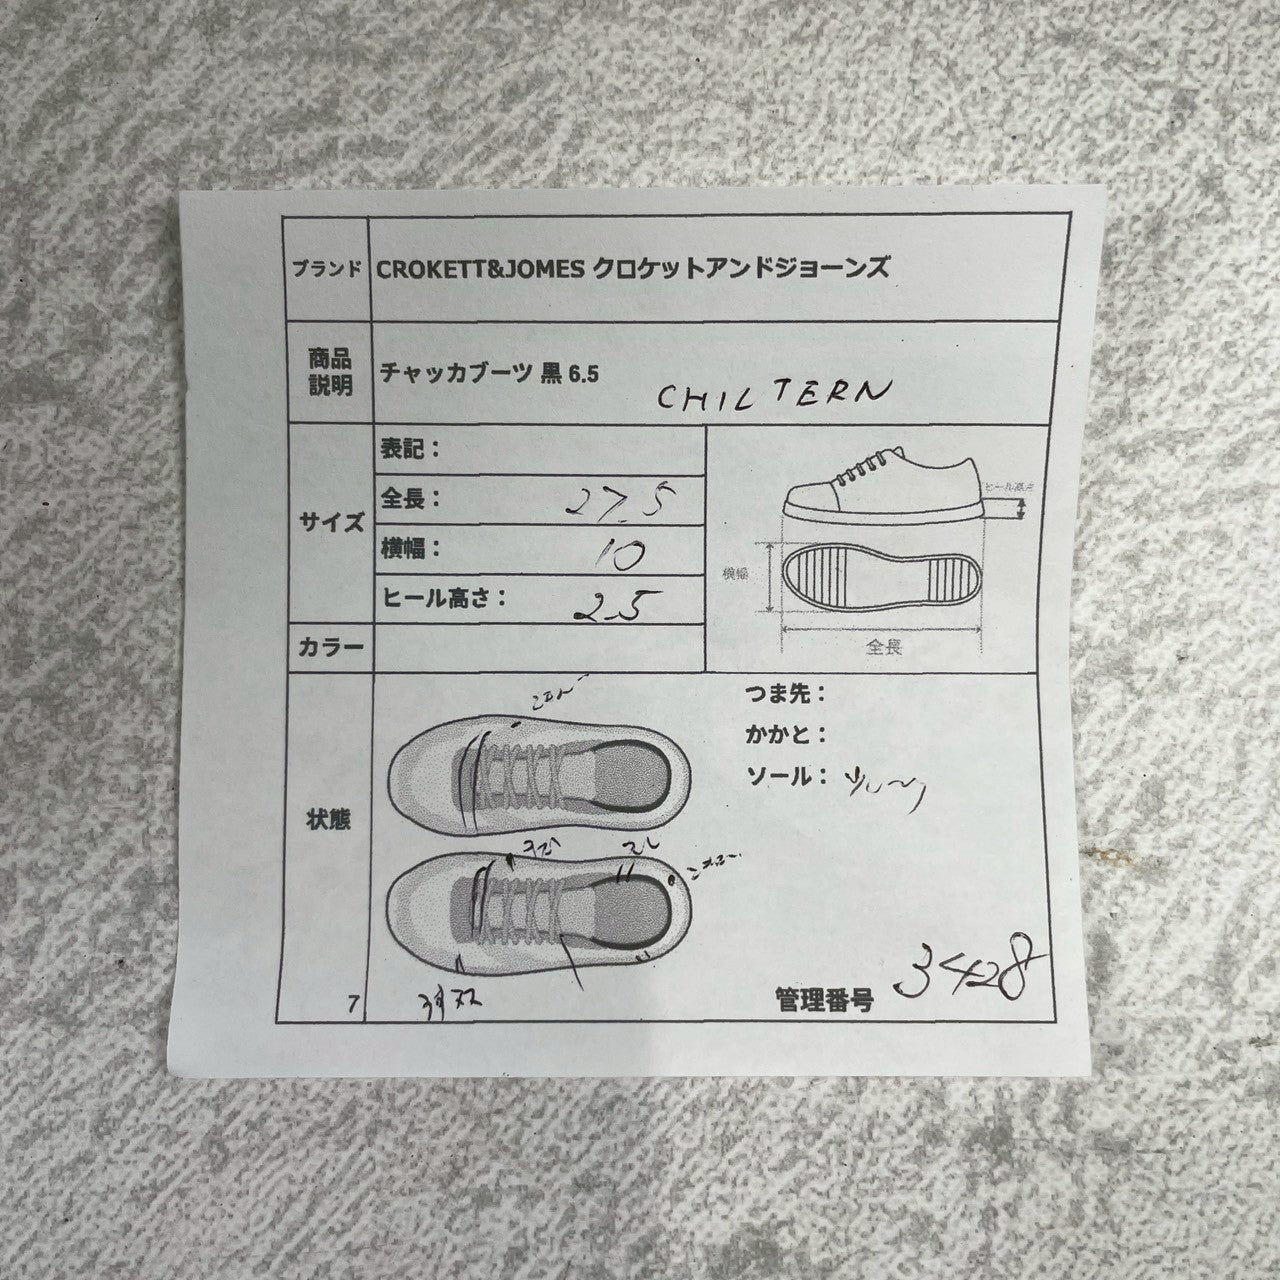 ブランド CROKETT&JOMES クロケットアンドジョーンズ
商品説明 チャッカブーツ 黒 6.5 CHILTERN
サイズ
表記：
全長： 27.5
横幅： 10
ヒール高さ： 2.5
ヒール高さ
横幅
全長
カラー
状態
つま先：
かかと：
ソール：
管理番号 3428
7